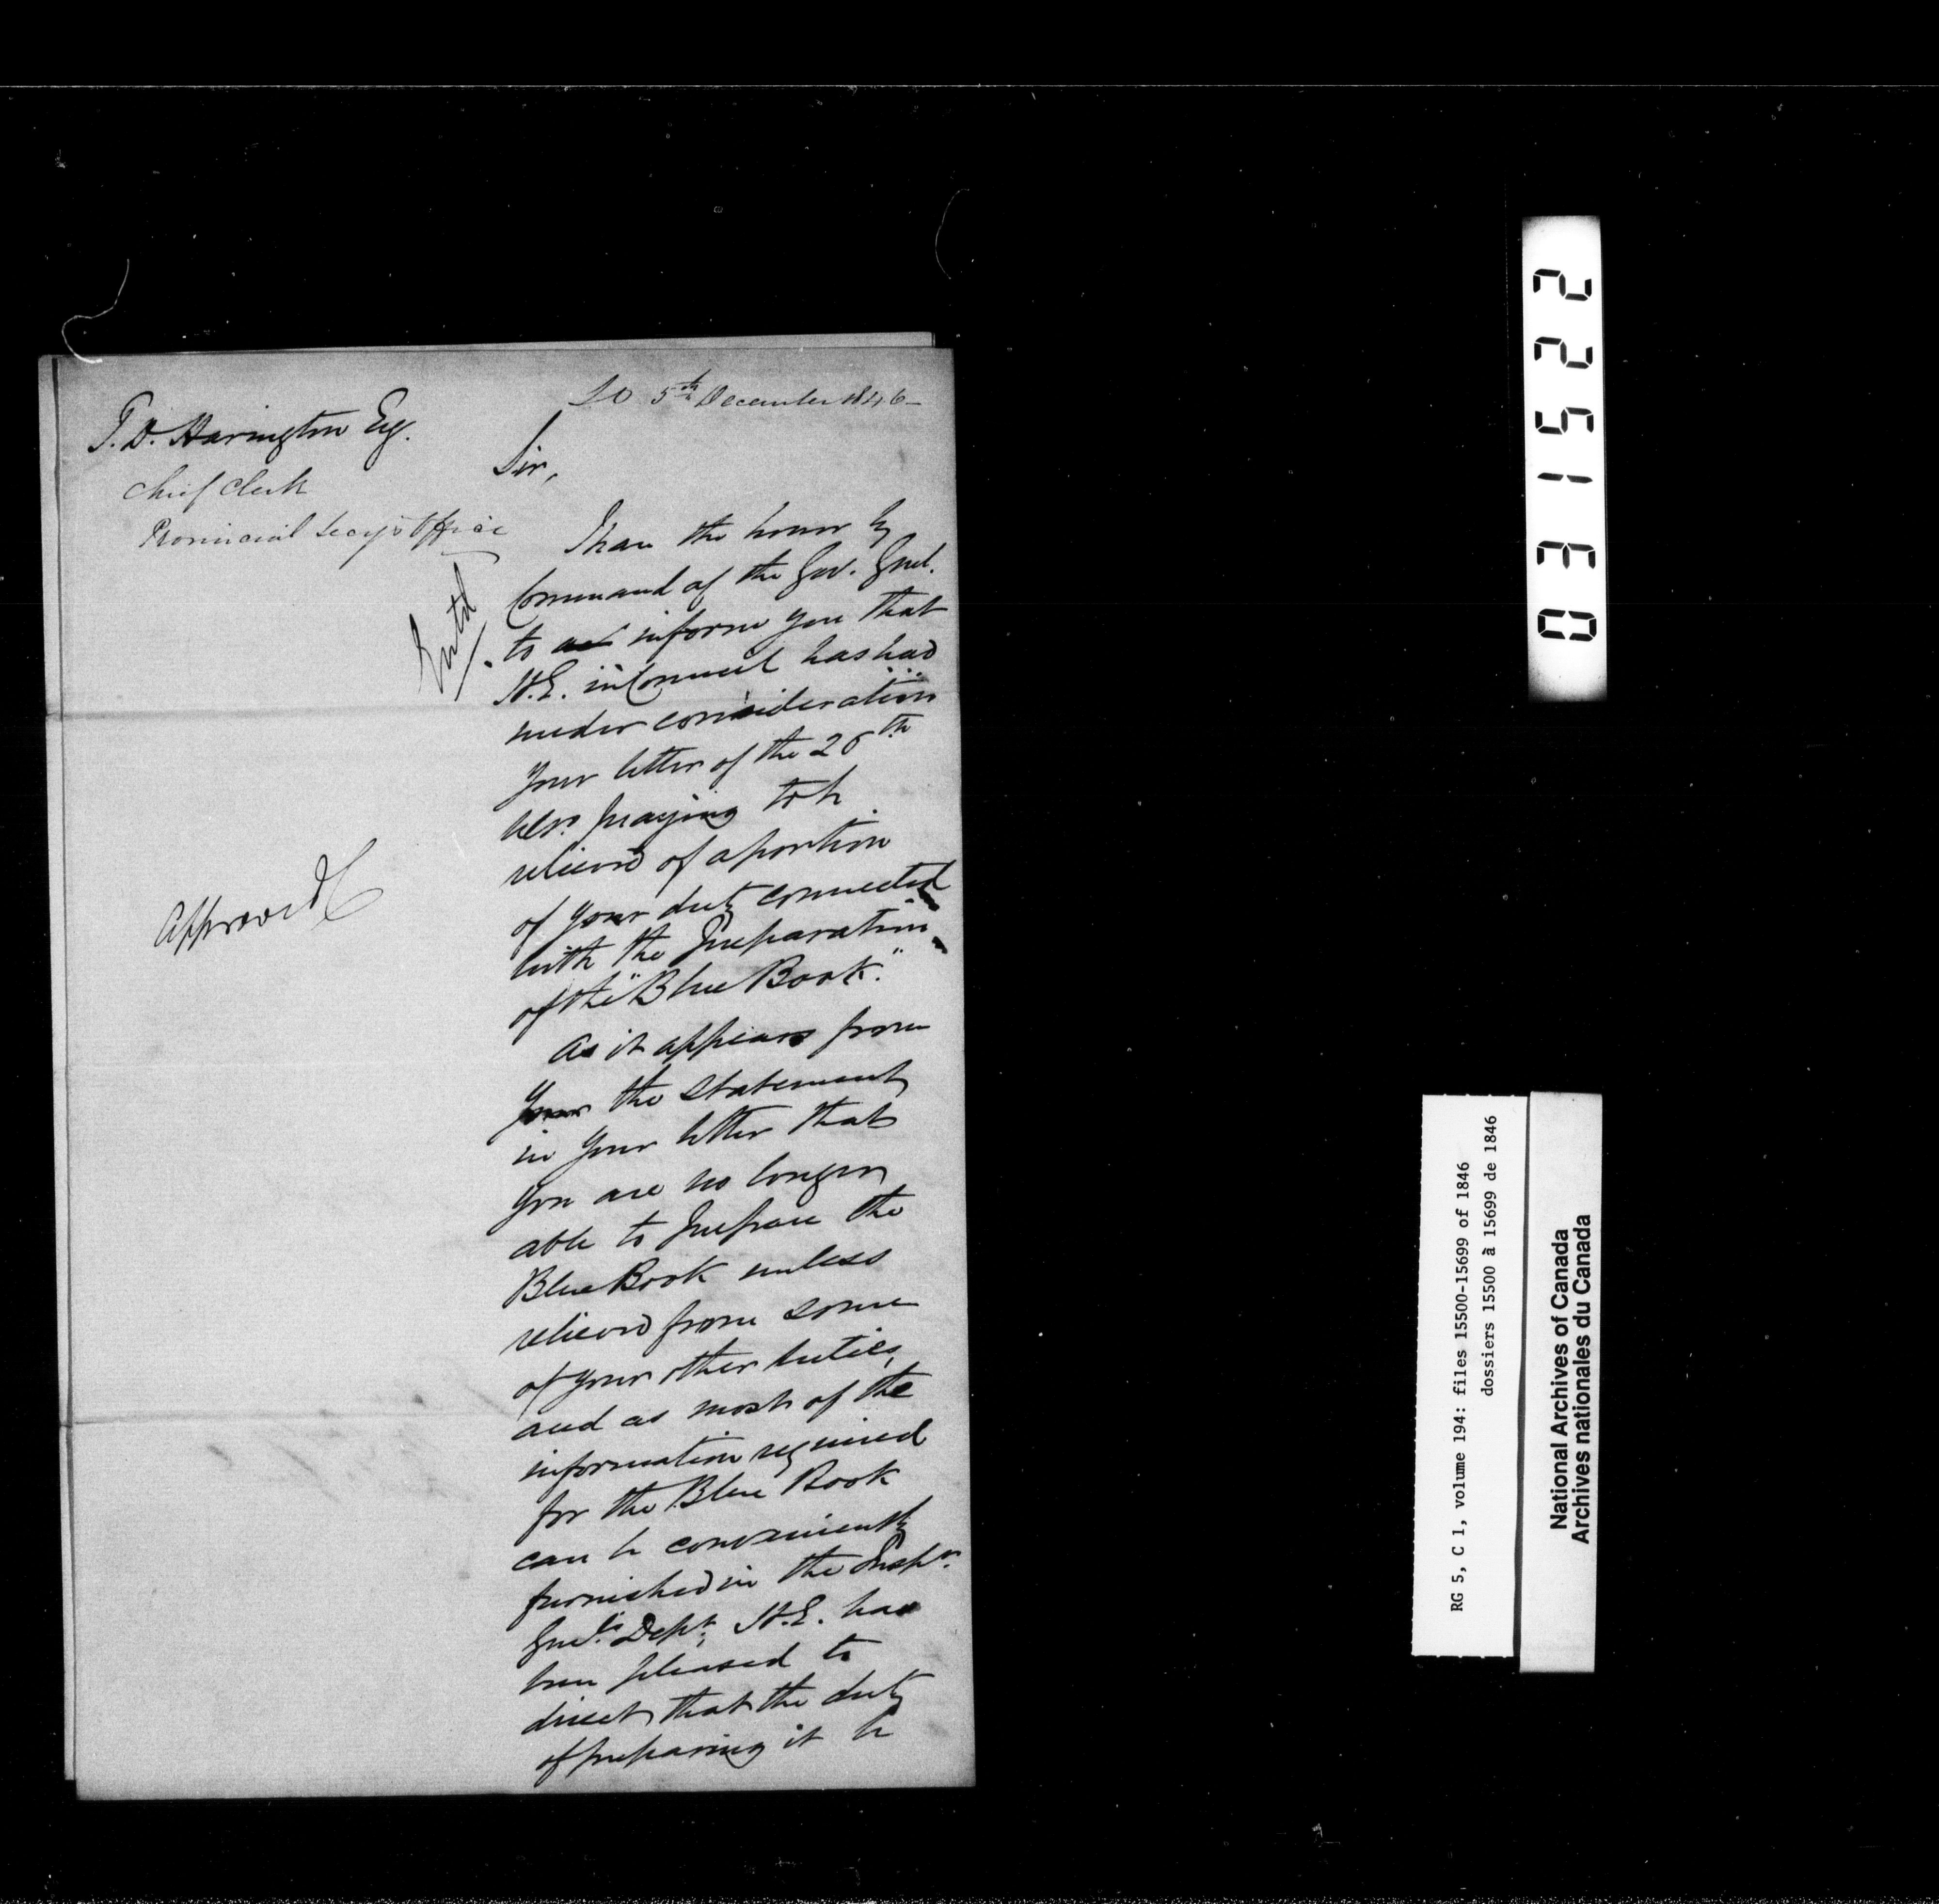 S.O 5th December 1846-
T. D. Harington Esq.
Chief Clerk
Provincial Secy's Office
Entd
Approved
Sir,
I have the honor by
Command of the Gov. Gnl.
to inform you that
H.E. in Council has had
under consideration
your letter of the 26th
ult. praying to be
relieved of a portion
of your duty connected
with the preparation
of the "Blue Book."
As it appears from
your the statement
in your letter that
you are no longer
able to prepare the
Blue Book unless
relieved from some
of your other duties,
and as most of the
information required
for the Blue Book
can be conveniently
furnished in the Inspr.
Gnl's Dept, H.E. has
been pleased to
direct that the duty
of preparing it be
031522
RG 5, C 1, volume 194: files 15500-15699 of 1846
dossiers 15500 à 15699 de 1846
National Archives of Canada
Archives nationales du Canada